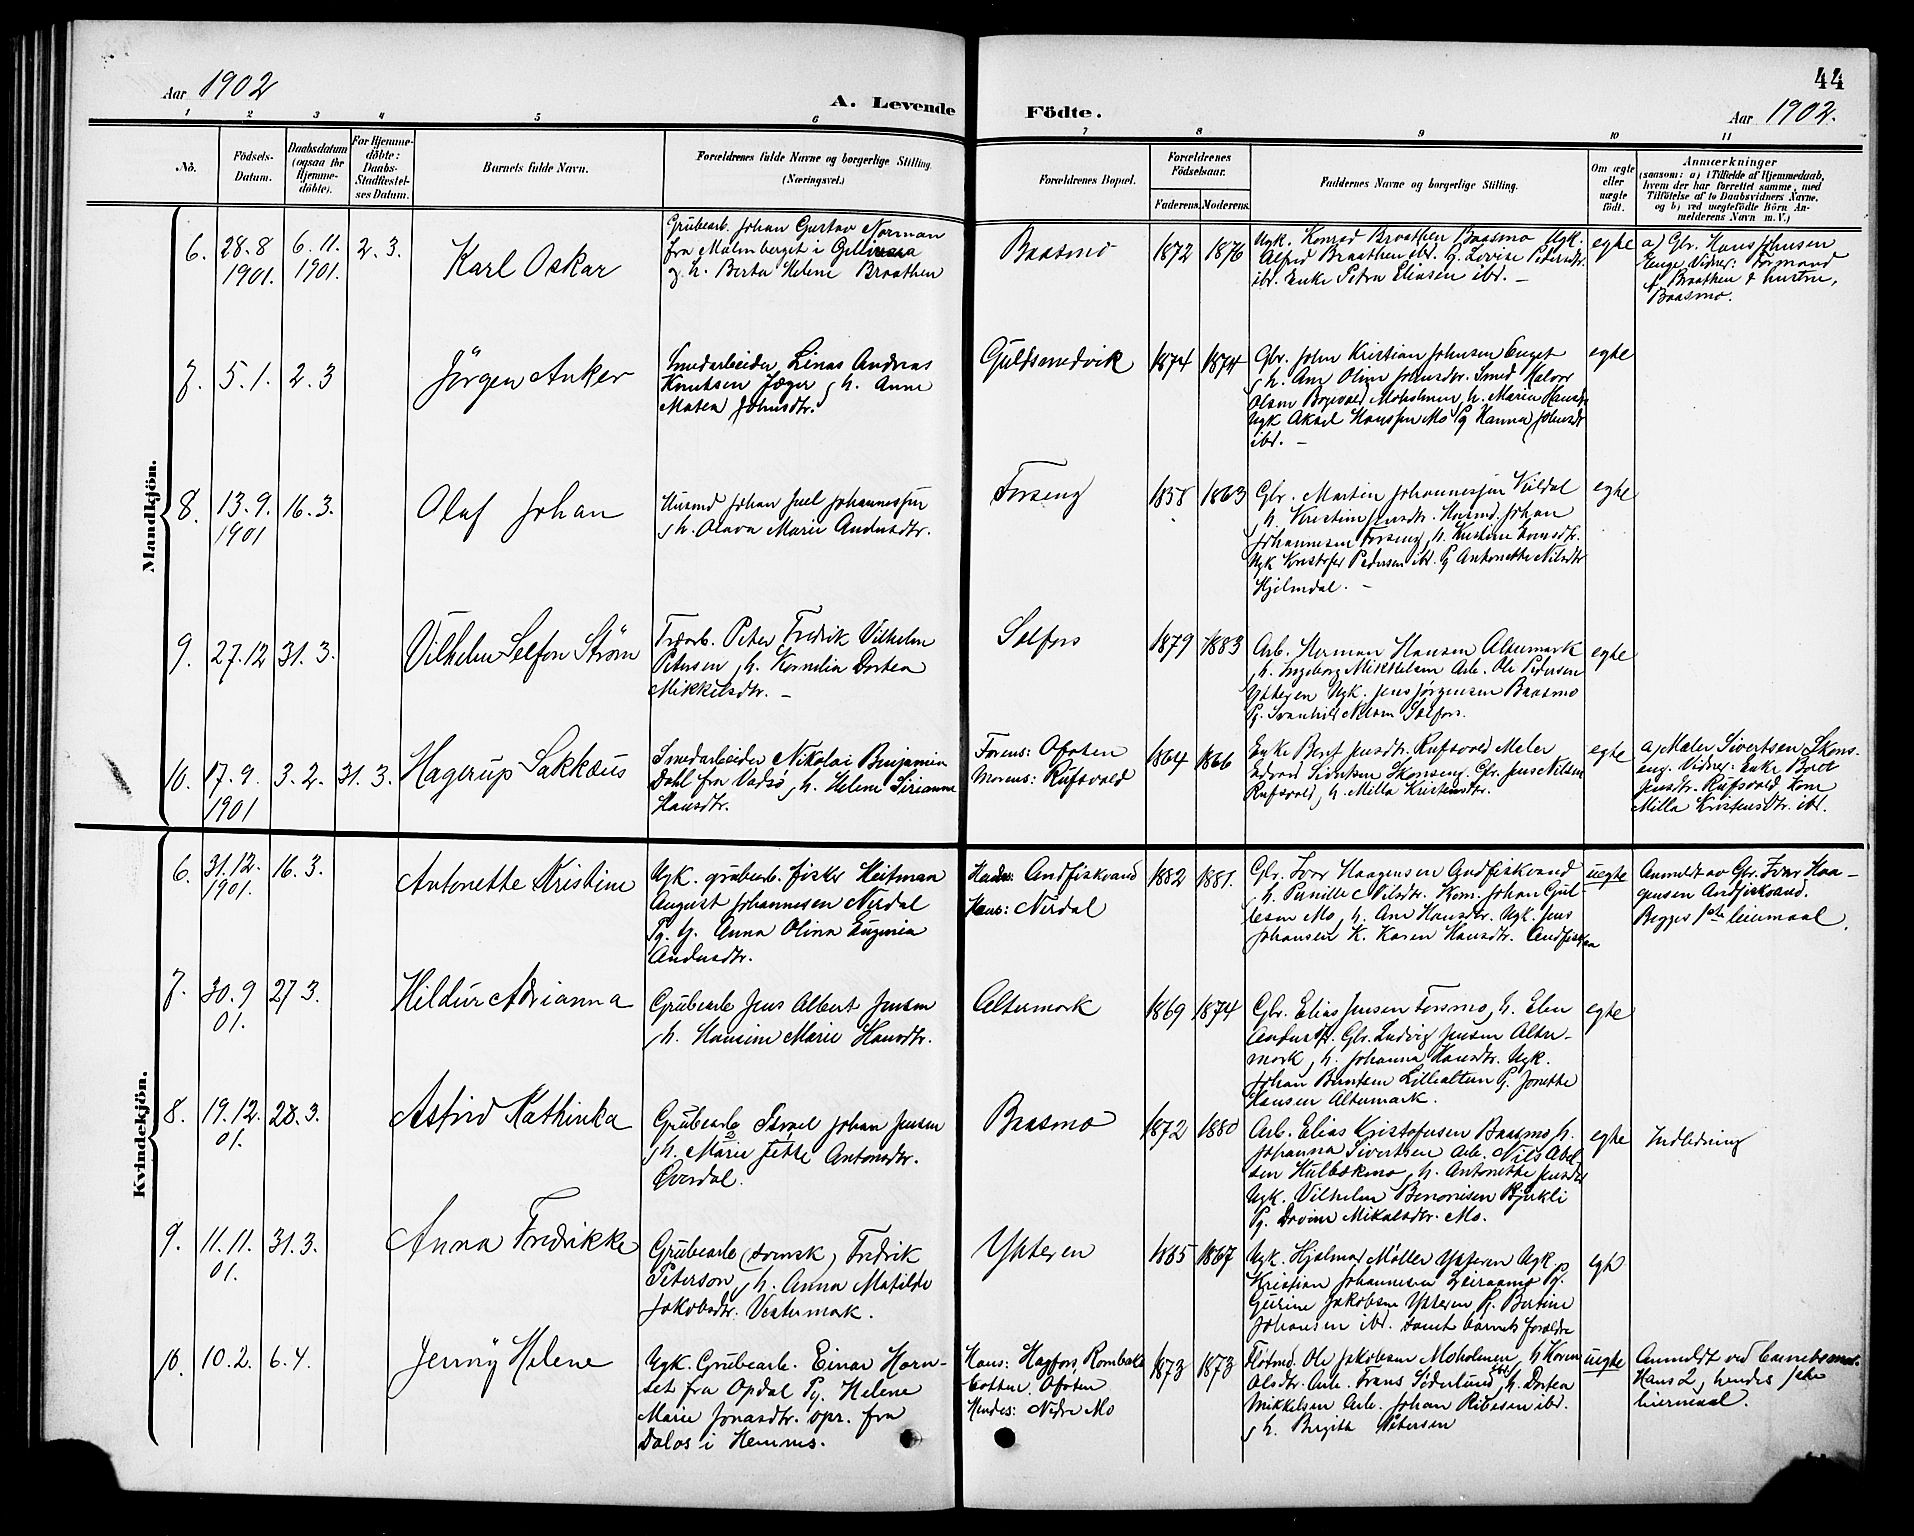 Aar 1902
A. Levende
Födte.
44
Aar 1902.
1 2 3 4 5 6 7 8 9 10 11
No.
Födsels-
Datum.
Daabsdatum
(ogsaa for
Hjemme-
döbte).
For Hjemme-
döbte:
Daabs-
Stadfæstel-
ses Datum.
Barnets fulde Navn.
Forældrenes fulde Navne og borgerlige Stilling
(Næringsvei.)
Forældrenes Bopæl.
Forældrenes
Födselsaar.
Faderens. Moderens.
Faddernes Navne og borgerlige Stilling.
Om ægte
eller
uægte
födt.
Anmærkninger
(saasom: a) i Tilfælde af Hjemmedaab,
hvem der har forrettet samme, med
Tilföielse af to Daabsvidners Navne,
og b) ved uægtefödte Börn An-
melderens Navn m. V.)
Mandkjön.
6. 28.8
1901.
6. 11.
1901.
2. 3.
Karl Oskar
Grubearb. Johan Gustav Norman
fra Malmberget i
og h. Berta Helene Braathen
Baasmo
1872 1876
Ugk. Konrad Braathen Baasmo Ugk.
Alfred Braathen ibd. G. Lovise Pedersdtr.
ibd. Enke Petra Eliasen ibd. –
egte
a) Gbr. Hans Johnsen
Enge Vidner: Formand
Braathen & hustru,
Baasmo.
7. 5. 1. 2. 3
Jörgen Anker
Smedarbeider Linas Andreas
Knutsen Jæger, h. Anne
Matea Johnsdtr.
Guldsmedvik
1874 1874
Gbr. John Kristian Johnsen Enget
, h. Ane Oline Johnsdtr. Smed Halvor
Olsen Moholmen, h. Marie Hansdtr.
Ugk Aksel Hanssen Mo Pg Hanna Johnsdtr
ibd. –
egte
8. 13. 9.
1901
16. 3.
Olaf Johan
Husmd Johan Juel Johannessen
, h. Olava Marie Andersdtr.
Forseng
1858 1863
Gbr. Martin Johannessen Kildal
, h. Kristine Jensdtr. Husmd. Johan
Johannesen Forseng, h. Kristine
Ugk Kristofer Pedersen ibd. Pg Antonette Nilsdtr
Hjelmdal. –
egte
9. 27. 12 31. 3.
Vilhelm Selfon Ström
Fredrik Vilhelm
Petersen, h. Kornelia Dortea
Mikkelsdtr. –
Selfors
1879 1883
Arb. Herman Hansen Altermark
, h. Ingeborg Mikkelsen Arb. Ole Pedersen
Ytteren Ugk. Jens Jörgensen Baasmo
Pg. Svanhild Selfors.
egte
10. 17. 9.
1901
3. 2. 31. 3.
Hagerup Sakkæus
Smedarbeider Nikolai Benjamin
Dahl fra Vadsø, h. Helene Sirianna
Hansdtr.
Farens: Ofoten
Morens: Rufsvold
1864 1866
Enke Beret Jensdtr. Rufsvold Maler
Edvard Sivertsen Skonseng. Gbr. Jens Nilsen
Rufsvold, h. Milla Kristensdtr.
egte
a) Maler Sivertsen Skons-
eng. Vidner: Enke Beret
Jensdtr. Rufsvold Kone
Milla Kristensdtr. ibd.
Kvindekjön.
6. 31. 12.
1901.
16. 3.
Antonette Kristine
Ugk. grubearb. fisker Heitman
August Johannesen Nerdal
Pg. G. Anna Olina Euginia
Andersdtr.
Andfiskvand
Hans: Nerdal
1882 1881.
Gbr. Ivar Haagensen Andfiskvand
, h. Pernille Nilsdtr. Kom. Johan
Mo, h. Ane Hansdtr. Ugk. Jens
Johansen K. Karen Hansdtr.
uegte
Anmeldt av Gbr. Ivar Haa-
gensen Andfiskvand.
Begges 1ste leiermaal.
7. 30. 9
01.
27 3.
Hildur Adrianna
Grubearb Jens Albert Jensen
, h. Hansine Marie Hansdtr.
Altermark
1869 1874
Gbr. Elias Jensen Forsmo, h. Elen
Andersdtr. Gbr. Ludvig Jensen Alter-
mark, h. Johanna Hansdtr. Ugk.
Johan Berntsen Lillealteren Pg. Jonette
Hansen Altermark.
egte
8. 19. 12.
01.
28. 3.
Astrid Kathinka
Grubearb Israel Johan Jensen
, h. Marie Jette Antonsdtr.
Överdal.
Baasmo
1872 1880
Arb. Elias Kristofersen Baasmo, h.
Johanna Sivertsen Arb. Nils Abel-
sen Hulbækmo, h. Antonette Jensdtr
Ugk. Vilhelm Benonisen Bjerkli
Pg. Dorine Mikalsdtr. Mo.
egte
Indledning
9. 11. 11.
01.
31. 3.
Anna Fredrikke
Grubearb (svensk) Fredrik
Peterson, h. Anna Matilde
Jakobsdtr. Vestermark.
Ytteren
1865 1867
Ugk. Hjalmar Møller Ytteren Ugk
Kristian Johannesen Leiraamo Pg.
Gurine Jakobsen Ytteren Pg. Bertine
Johansen ibd. samt barnets forældre
egte
10. 10. 2. 6. 4.
Jenny Helene
Ugk. Grubearb. Einar Horn-
set fra Opdal Pg. Helene
Marie Jonasdtr. opr. fra
Dalos i Hemnes.
Hans: Hagfors, Rombaks-
botten, Ofoten
Hendes: Nedre Mo
1873 1873
Flötmd. Ole Jakobsen Moholmen, h Karen
Olsdtr. Arb. Frans Söderlund ibd, h. Dortea
Mikkelsen Arb. Johan Ribesen ibd.
, h. Birgita Petersen
uegte
Anmeldt ved barnets mor.
Hans 2, hendes 1ste
leiermaal.